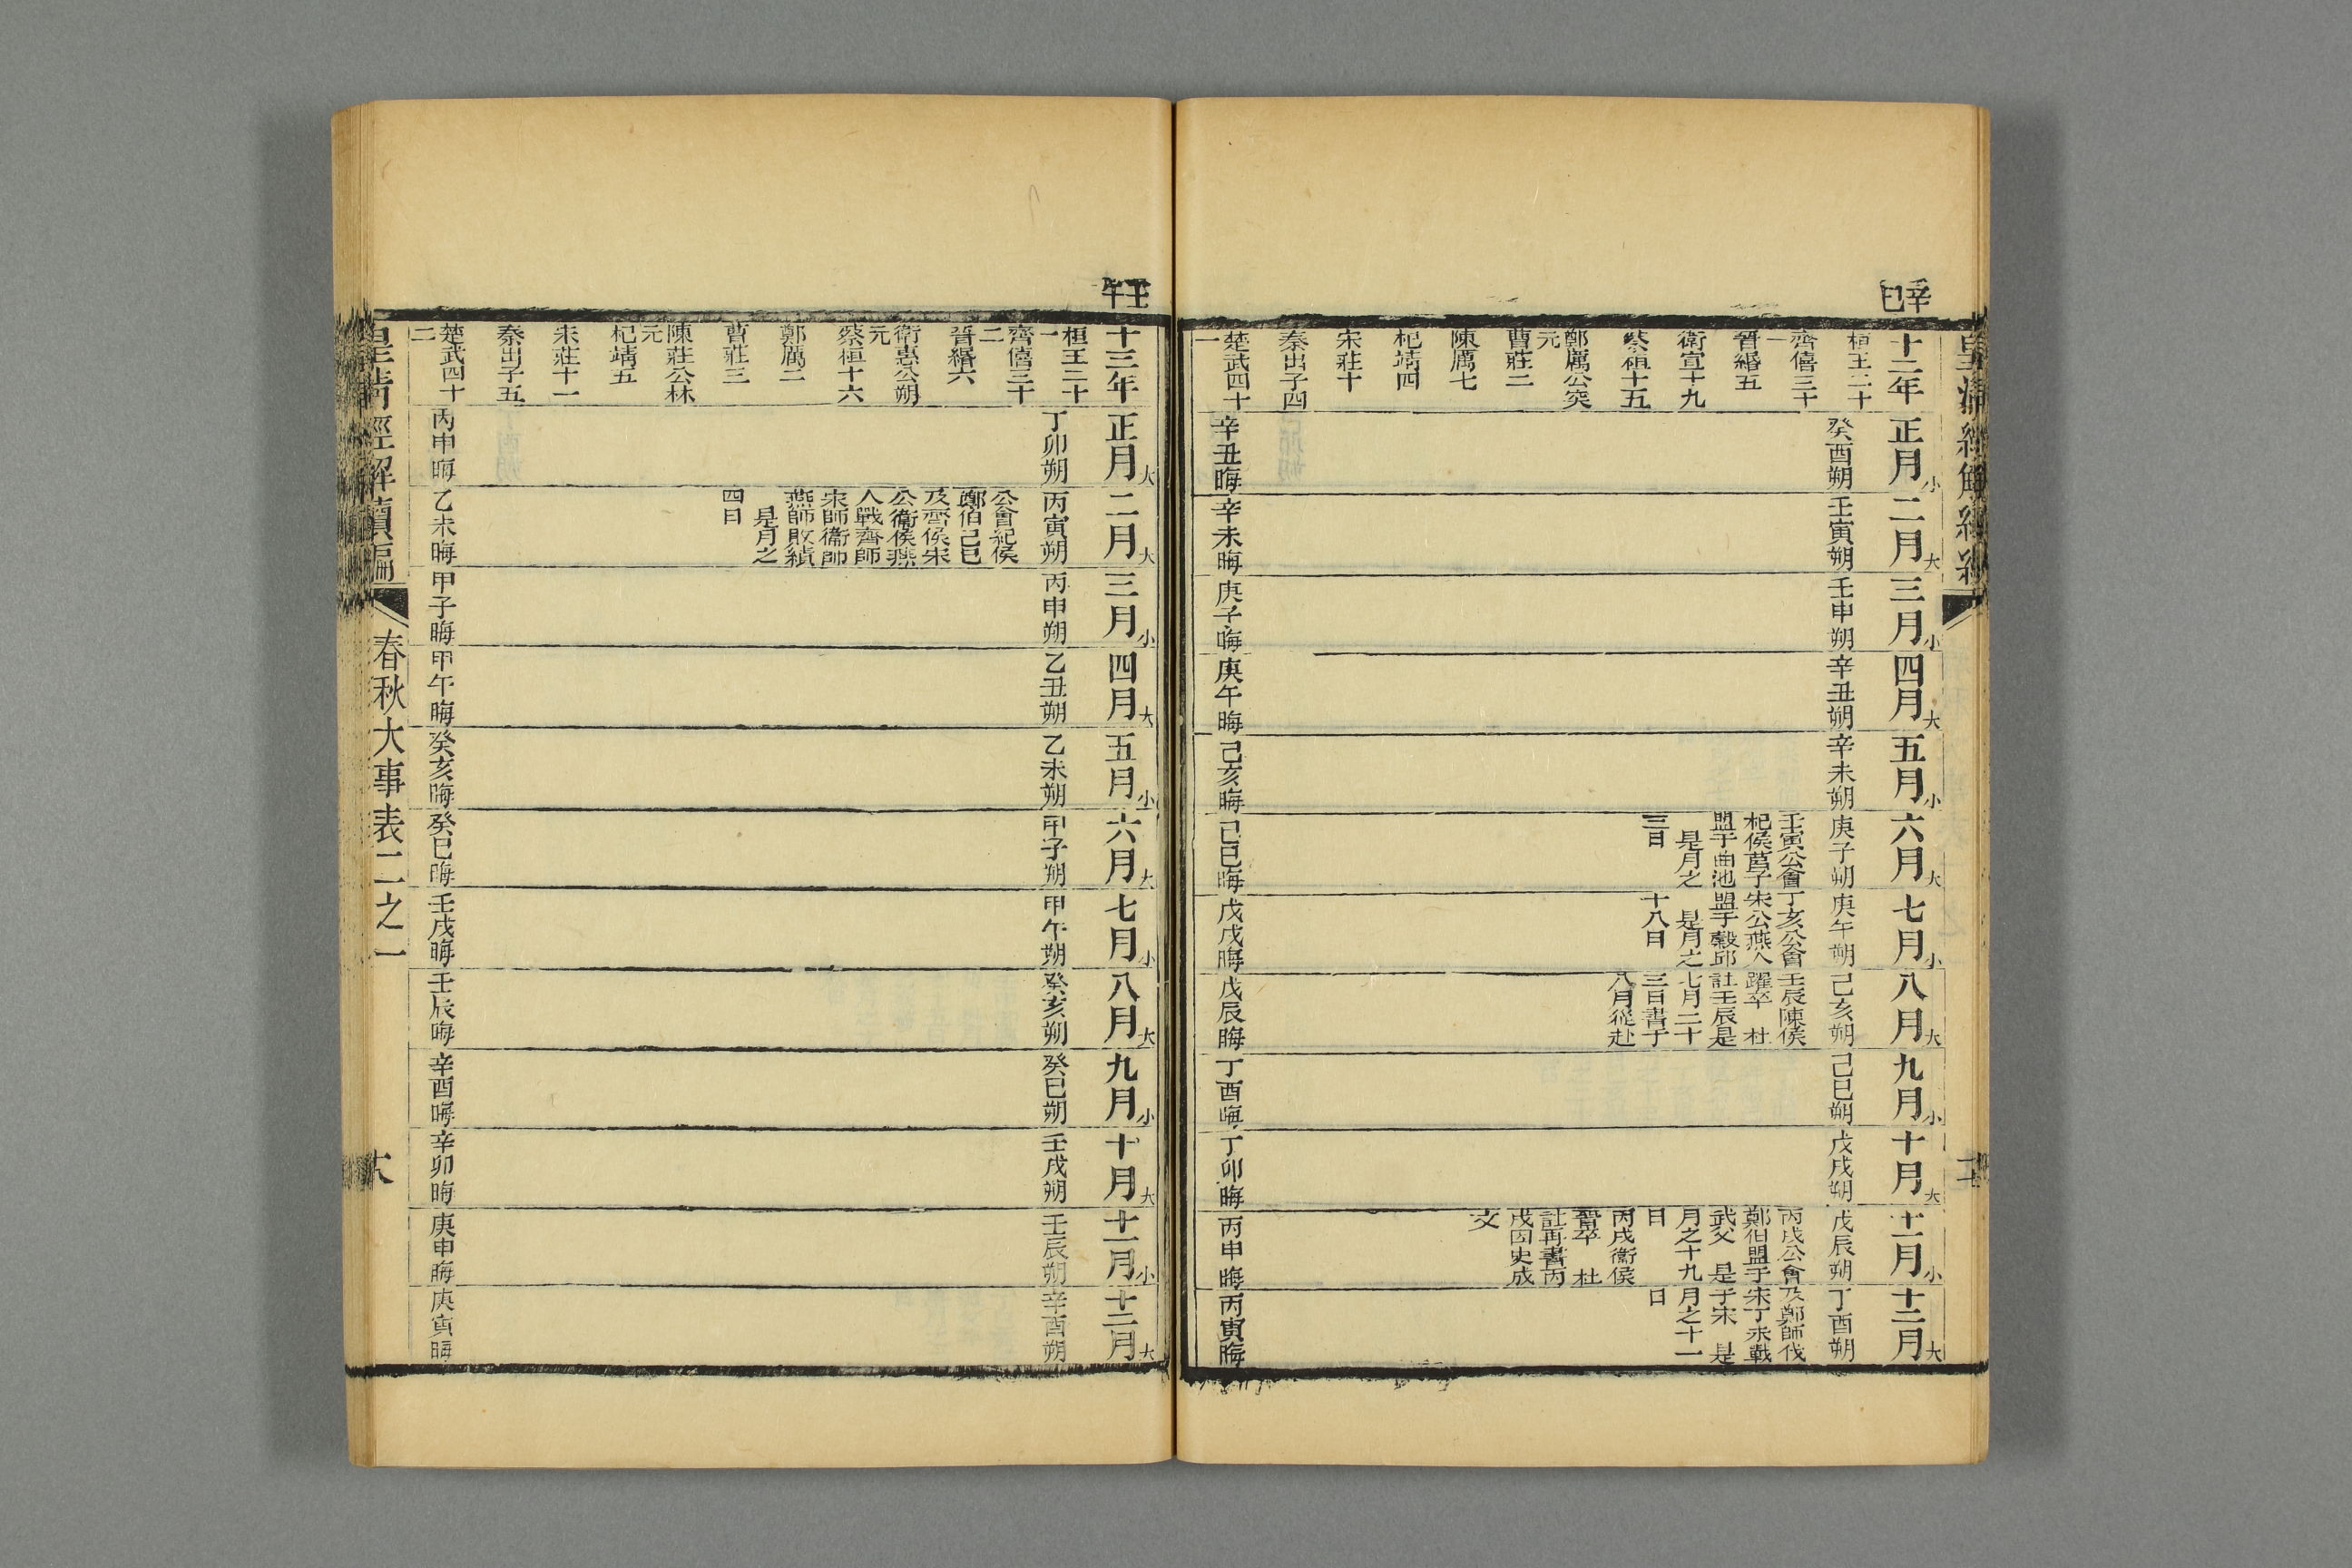 辛巳
十二年
桓王二十
一
齊僖三十
晉緡五
衛宣十九
蔡桓十五
鄭厲公突
元
曹莊二
陳厲七
杞靖四
宋莊十
秦出子四
楚武四十
一
正月小
癸酉朔
辛丑晦
二月大
壬寅朔
辛未晦
三月小
壬申朔
庚子晦
四月大
辛丑朔
庚午晦
五月小
辛未朔
己亥晦
六月大
庚子朔
壬寅公會
杞侯莒子
盟于曲池
是月之
三日
己巳晦
七月小
庚午朔
丁亥公會
宋公燕人
盟于穀邱
是月之
十八日
戊戌晦
八月大
己亥朔
壬辰陳侯
躍卒 杜
註壬辰是
七月二十
三日書于
八月從赴
戊辰晦
九月小
己巳朔
丁酉晦
十月大
戊戌朔
丁卯晦
十一月小
戊辰朔
丙戌公會
鄭伯盟于
武父 是
月之十九
日
丙戌衛侯
晉卒 杜
註再書丙
戌因史成
文
丙申晦
十二月大
丁酉朔
及鄭師伐
宋丁未戰
于宋 是
月之十一
日
丙寅晦
壬午
十三年
桓王二十
一
齊僖三十
二
晉緡六
衛惠公朔
元
蔡桓十六
鄭厲二
曹莊三
陳莊公林
元
杞靖五
宋莊十一
秦出子五
楚武四十
二
正月大
丁卯朔
丙申晦
二月大
丙寅朔
公會紀侯
鄭伯己巳
及齊侯宋
公衞侯燕
人戰齊師
宋師衞師
燕師敗績
是月之
四日
乙未晦
三月小
丙申朔
甲子晦
四月大
乙丑朔
甲午晦
五月小
乙未朔
癸亥晦
六月大
甲子朔
癸巳晦
七月小
甲午朔
壬戌晦
八月大
癸亥朔
壬辰晦
九月小
癸巳朔
辛酉晦
十月大
壬戌朔
辛卯晦
十一月小
壬辰朔
庚申晦
十二月大
辛酉朔
庚寅晦
皇清經解續編
春秋大事表二之一